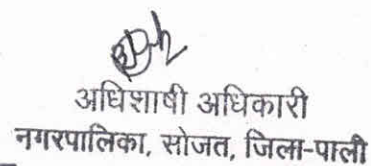 अधिशाषी अधिकारी
नगरपालिका, सोजत, जिला-पाली